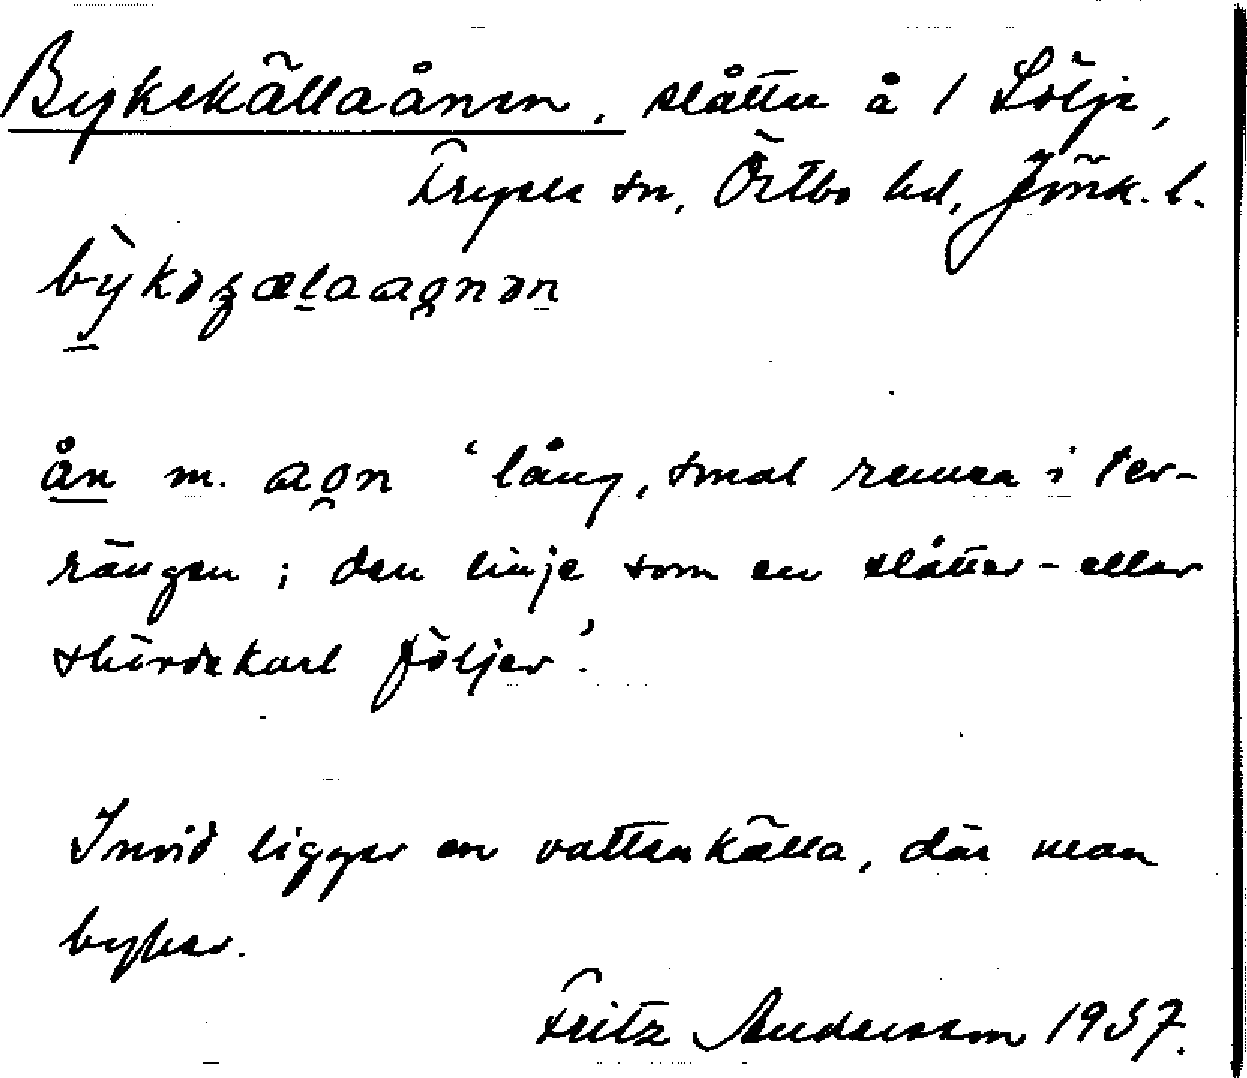 Bykekällaånen, slåtter å 1 Sölje,
Fryele sn, Östbo hd, Jönk. l.
bỳkəʒælaaonən
ån m. aon ‘lång, smal remsa i ter-
rängen; den linje som en slåtter- eller
skördekarl följer’.
Invid ligger en vattenkälla, där man
byker.
Fritz Andersson 1937.